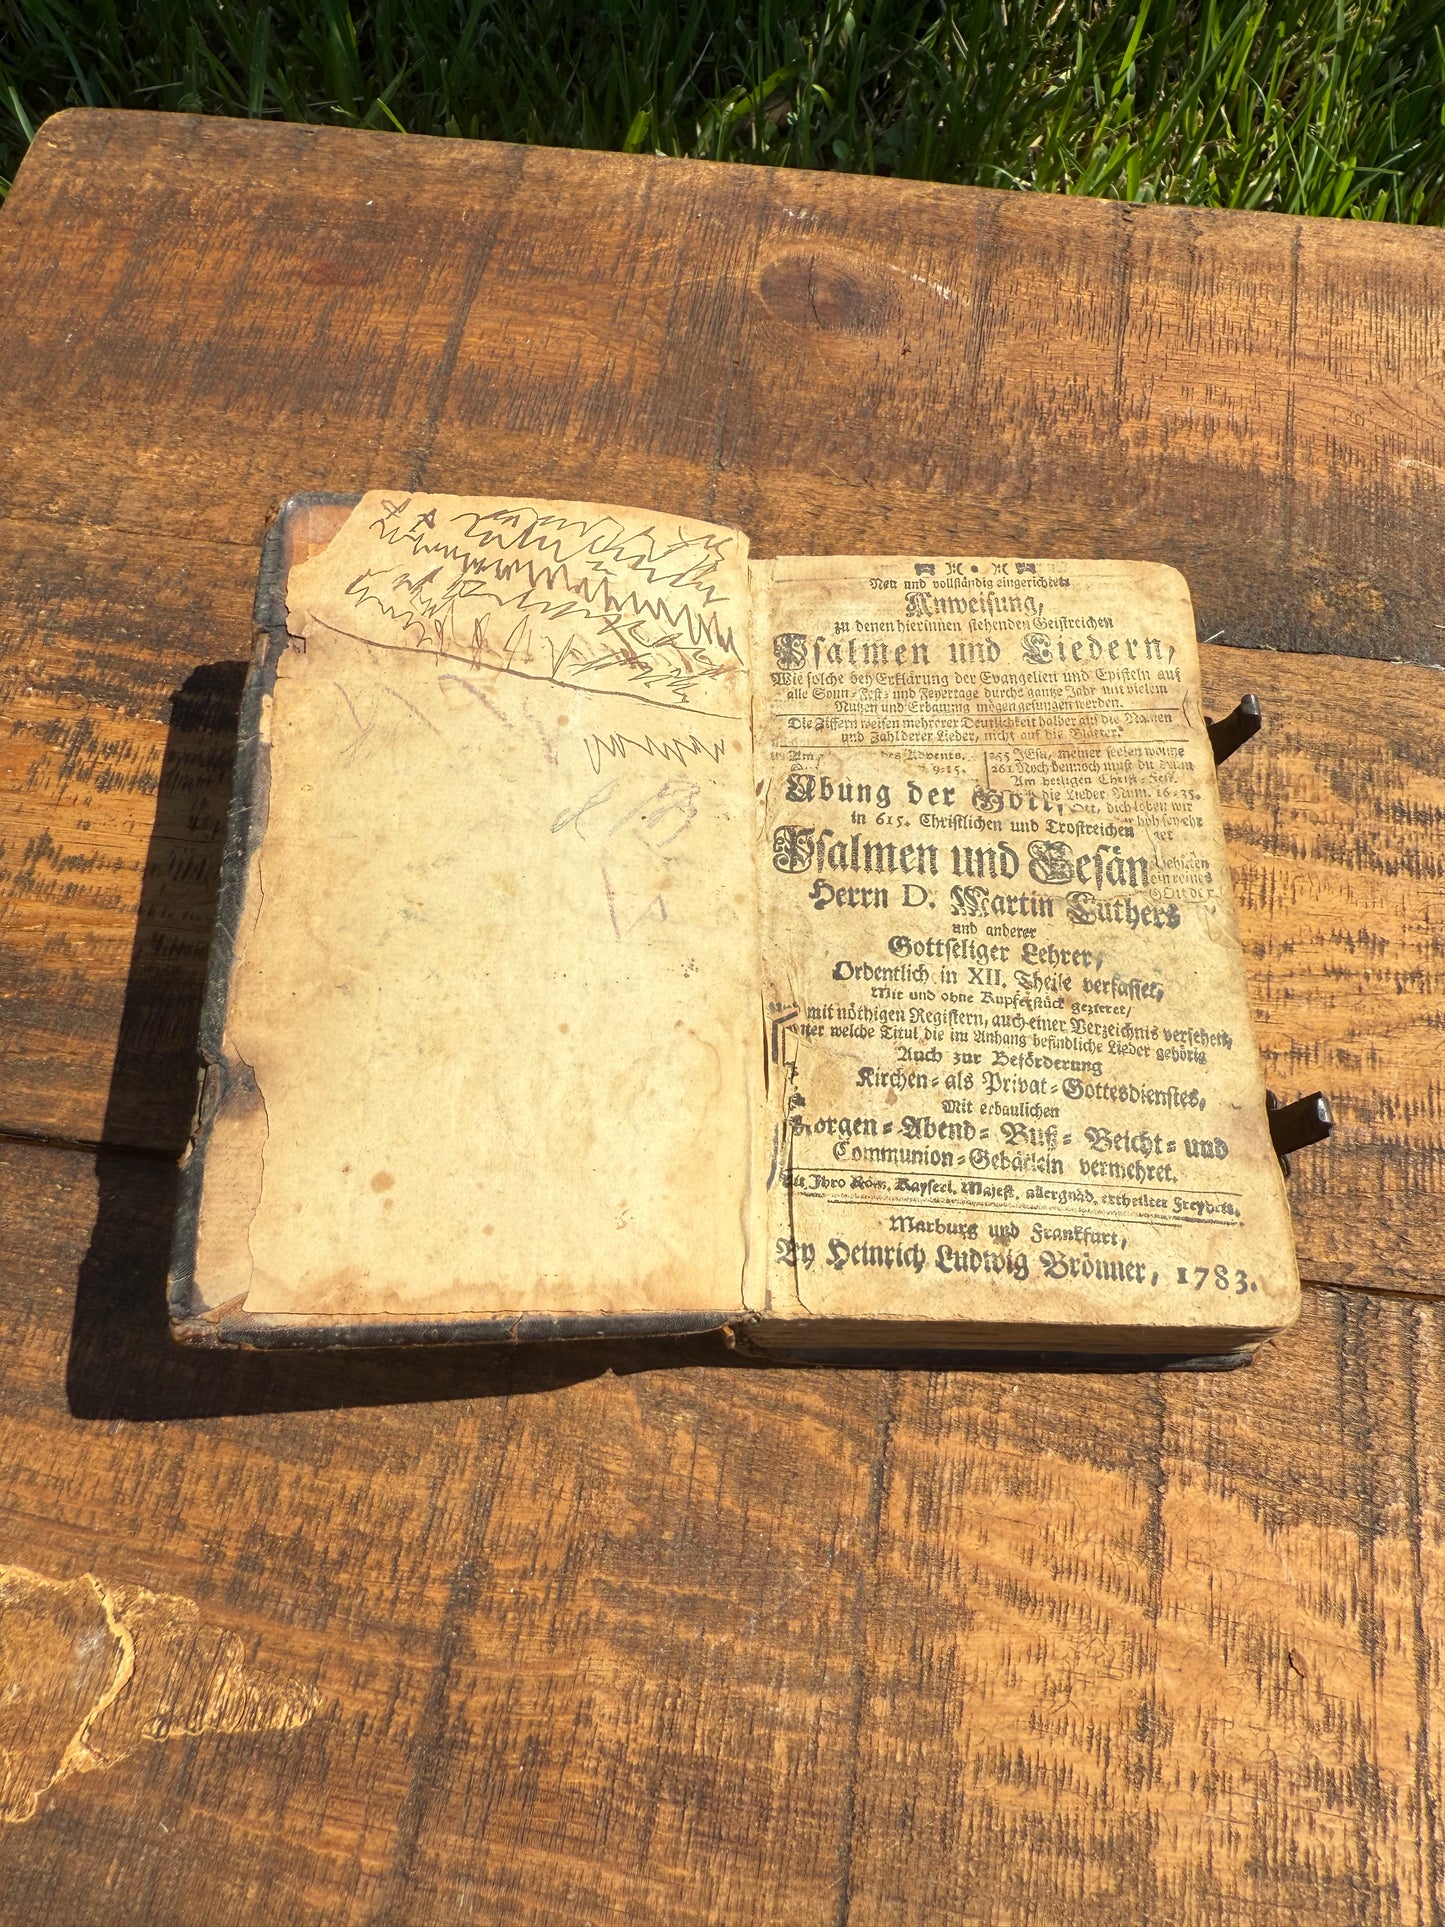 Neu und vollständig eingerichtete
Anweisung,
zu denen hierinnen stehenden Geistreichen
Psalmen und Liedern,
Wie solche bey Erklärung der Evangelien und Episteln auf
alle Sonn- Fest- und Feyertage durchs gantze Jahr mit vielem
Nutzen und Erbauung mögen gesungen werden.
Die Ziffern weisen mehrerer Deutlichkeit halber auf die Namen
und Zahl derer Lieder, nicht auf die Blätter.
des Advents. 255 JEsu, meiner seelen wonne
9-15. 261 Noch dennoch must du
Am heiligen Christ-Fest.
die Lieder Num. 16-35.
Ubung der GOtt,
dich loben wir
in 615. Christlichen und Trostreichen
Psalmen und Gesän
ein reines
Herrn D. Martin Luthers
und anderer
Gottseliger Lehrer,
Ordentlich in XII. Theile verfasset,
Mit und ohne Kupferstück gezieret/
mit nöthigen Registern, auch einer Verzeichnis versehen,
unter welche Titul die im Anhang befindliche Lieder gehörig
Auch zur Beförderung
Kirchen- als Privat-Gottesdienstes,
Mit erbaulichen
Morgen- Abend- Buß- Beicht- und
Communion-Gebätlein vermehret.
Mit Ihro Röm. Kayserl. Majest. allergnäd. ertheilter Freyheit.
Marburg und Franckfurt,
By Heinrich Ludwig Brönner, 1783.